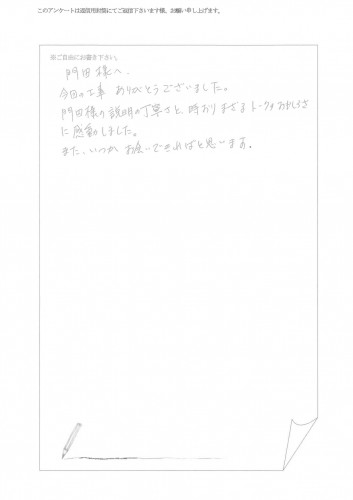 このアンケートは返信用封筒にてご返送下さいます様、お願い申し上げます。
※ご自由にお書き下さい。
門田様へ
今回の工事 ありがとうございました。
門田様の説明の丁寧さと、時おりまざるトークのおもしろさ
に感動しました。
また、いつか お会いできればと思います。